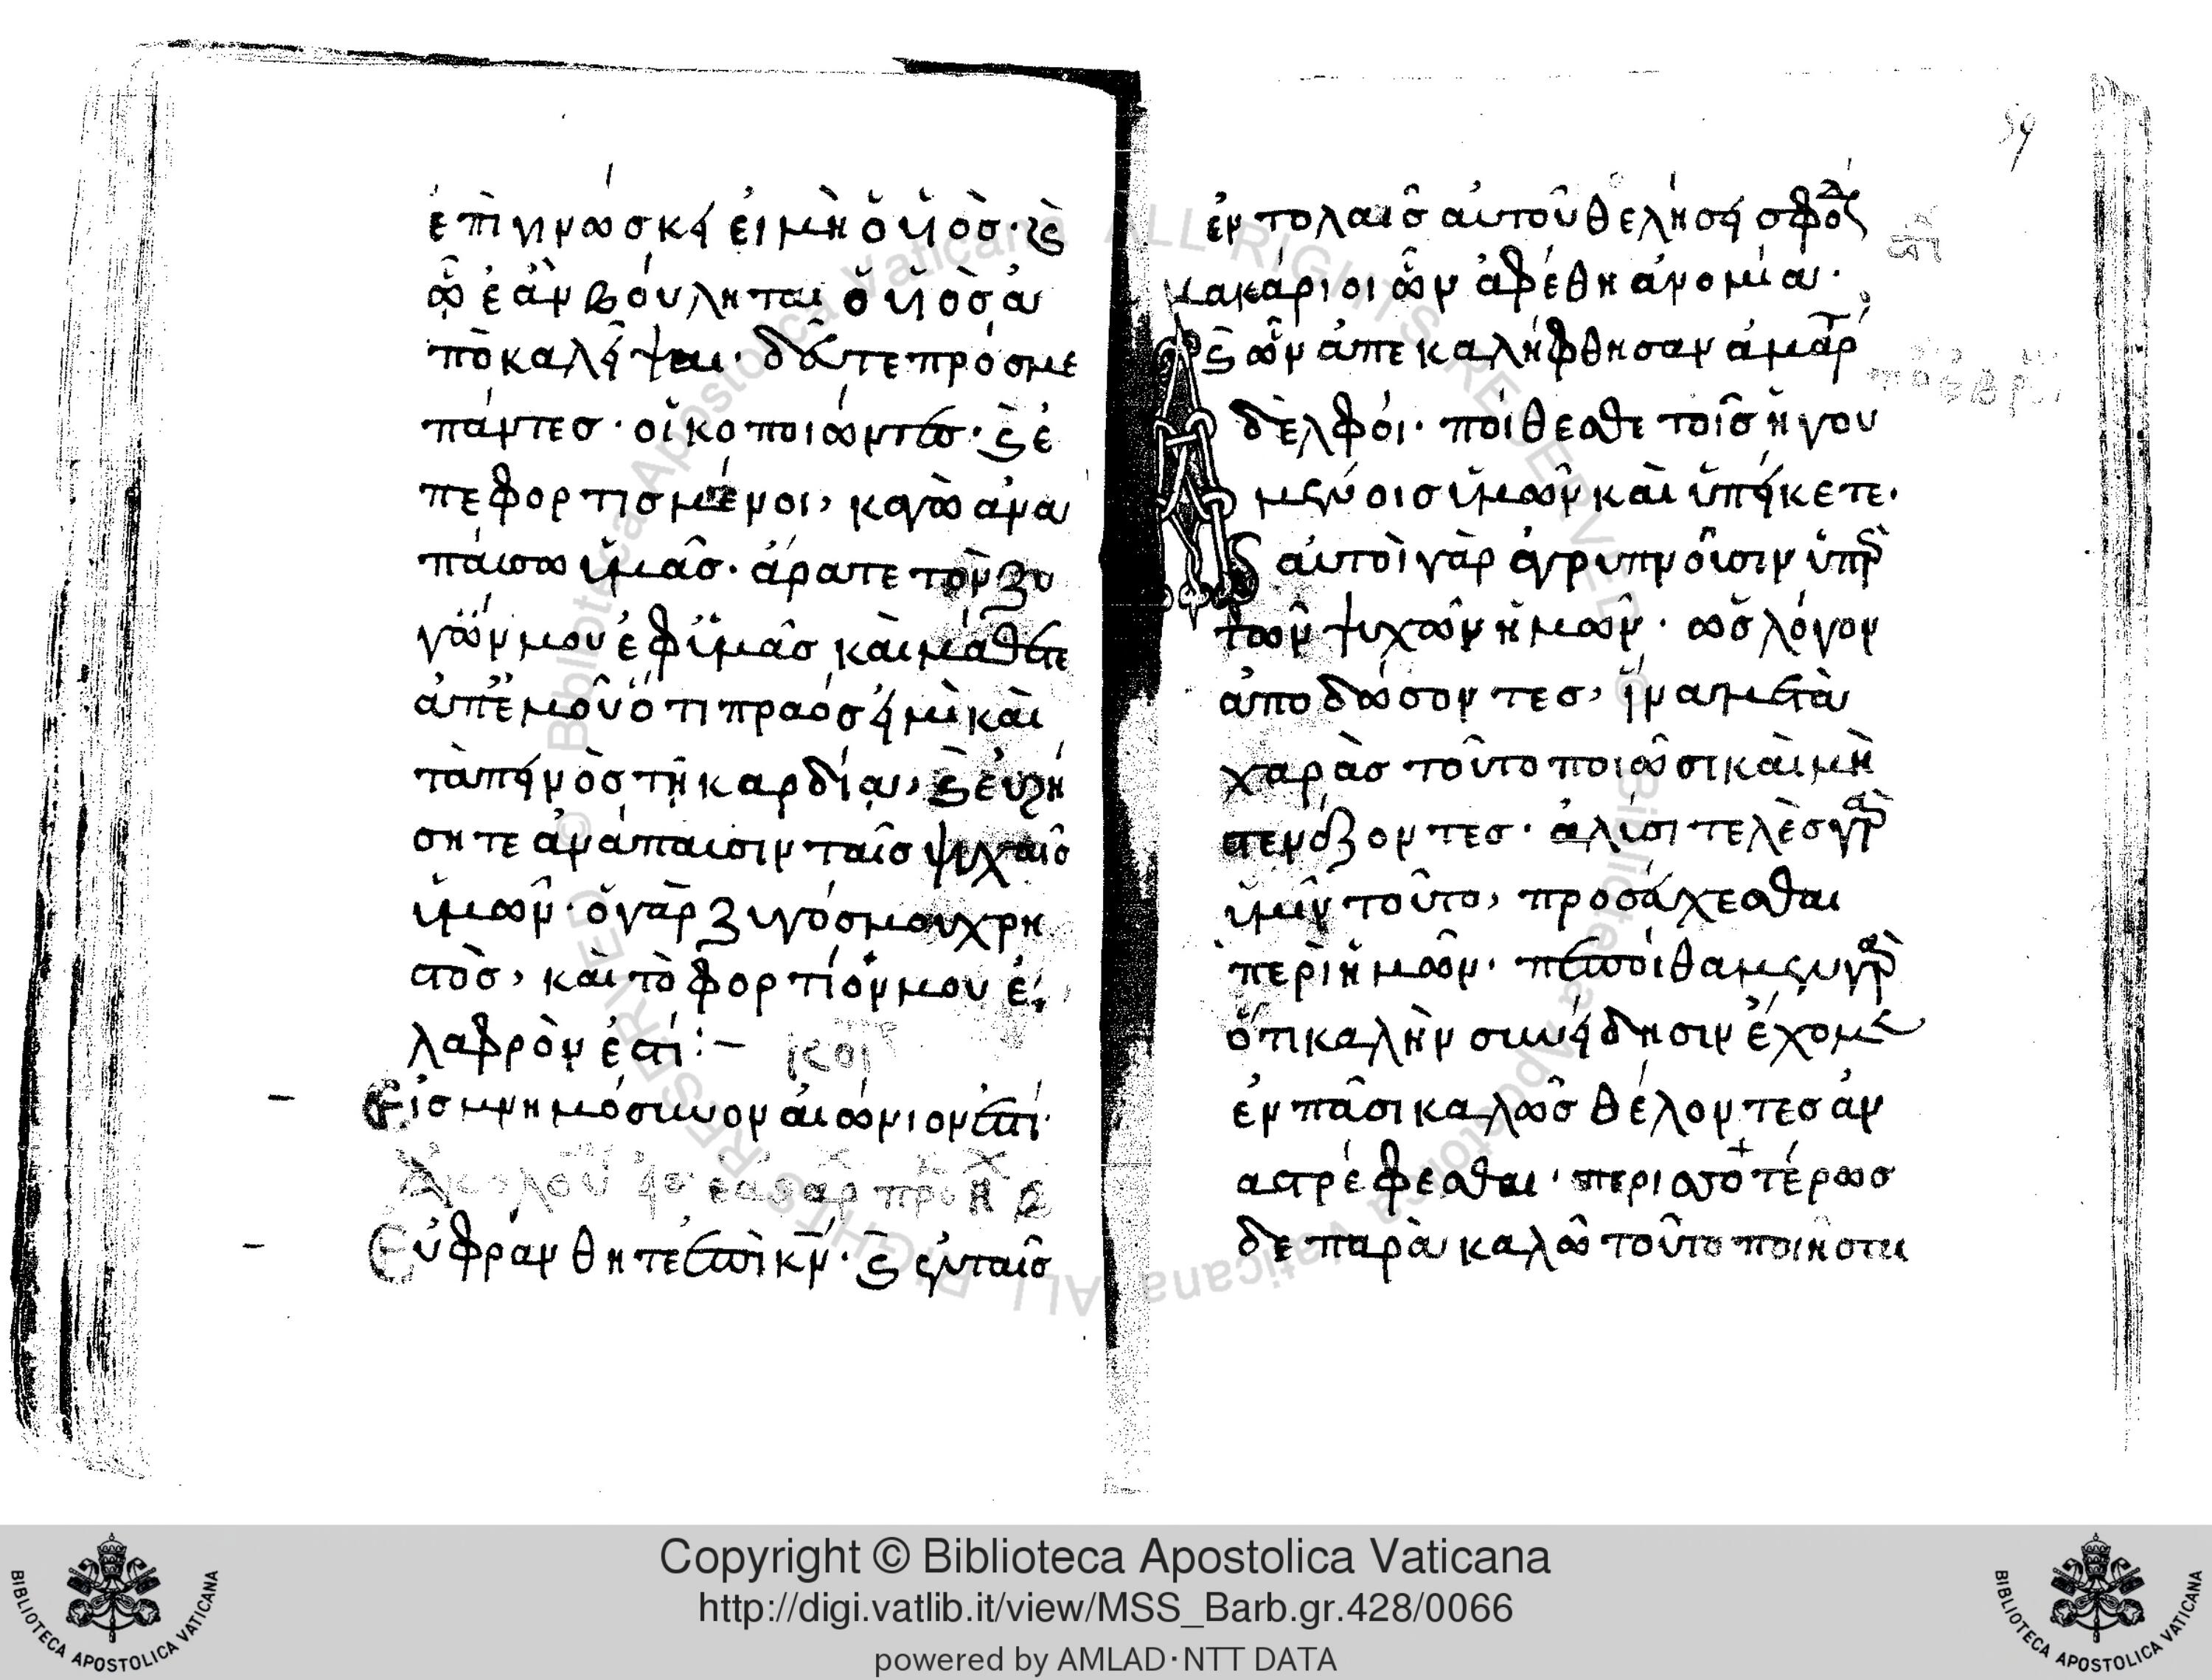 ἐπϊγινώσκει εἰ μὴ ὁ ὑιὸσ· κ(αὶ)
ὧ ἐὰν βούληται ὁ ὑιὸσ ἀ
ποκαλείψαι· δεῦτε πρόσ με
πάντεσ· οἱ κοποιώντεσ· κ(αὶ) ἐ
πεφορτισμένοι, καγὼ ἀνα
πάυσω ὑμᾶσ· ἄρατε τὸν ζυ
γών μου ἐφ ὑμᾶσ καὶ μάθετε
ἀπ ἐμοῦ ὅτι πραόσ ειμὶ καὶ
ταπεινὸσ τῇ καρδία, κ(αὶ) ἑυρή
σητε ἀνάπαυσιν ταῖσ ψυχαῖσ
ὑμῶν· ὁ γὰρ ζυγόσ μου χρη
στὸσ, καὶ τὸ φορτίον μου ἐ
λαφρόν ἐστί:–
Εἰσ μνημόσυνον αἰώνιον ἐστί·
Εὐφράνθητε ἐπὶ κν· κ(αὶ) ἐν ταῖσ
ἐντολαῖσ αὐτοῦ θελήσει σφό
μακάριοι ὧν ἀφέθη ἀνομία·
κ(αὶ) ὧν ἀπεκαλήφθησαν ἁμαρτ
Ἀδελφόι· πείθεσθε τοῖσ ἡγου
μένοισ ὑμῶν καὶ ὑπείκετε·
αὐτοὶ γὰρ ἀγρυπνοῦσιν ὑπὲρ
τῶν ψυχῶν ἡμῶν· ὡσ λόγον
ἀποδώσοντεσ, ἵνα μετὰ
χαρᾶσ τοῦτο ποιῶσι καὶ μὴ
στενάζοντεσ· ἀλυσιτελὲσ γὰρ
ὑμῖν τοῦτο, προσέυχεσθαι
περὶ ἡμῶν· πεποίθαμεν γὰρ
ὅτι καλὴν συνείδησιν ἔχομεν
ἐν πᾶσι καλῶσ θέλοντεσ ἀν
αστρέφεσθαι· περισσοτέρωσ
δε παρακαλῶ τοῦτο ποιῆσαι
59
Copyright © Biblioteca Apostolica Vaticana
http://digi.vatlib.it/view/MSS_Barb.gr.428/0066
powered by AMLAD·NTT DATA
BIBLIOTECA APOSTOLICA VATICANA
BIBLIOTECA APOSTOLICA VATICANA